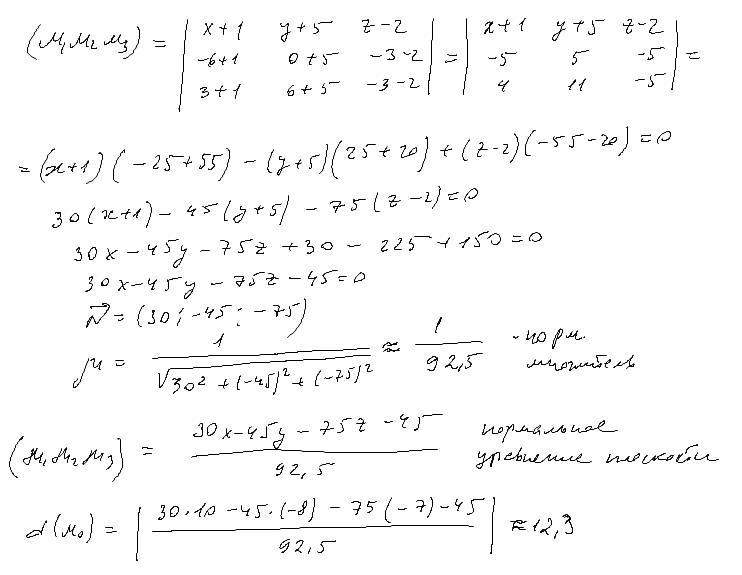 (M₁M₂M₃) = | x+1 y+5 z-2 | = | x+1 y+5 z-2 | =
| -6+1 0+5 -3-2 | | -5 5 -5 |
| 3+1 6+5 -3-2 | | 4 11 -5 |
= (x+1)(-25+55) - (y+5)(25+20) + (z-2)(-55-20) = 0
30(x+1) - 45(y+5) - 75(z-2) = 0
30x - 45y - 75z + 30 - 225 + 150 = 0
30x - 45y - 75z - 45 = 0
N⃗ = (30; -45; -75)
μ = 1 / √(30² + (-45)² + (-75)²) ≈ 1 / 92,5 - норм. множитель
(M₁M₂M₃) = (30x - 45y - 75z - 45) / 92,5 нормальное уравнение плоскости
d(M₀) = | (30·10 - 45·(-8) - 75(-7) - 45) / 92,5 | ≈ 12,3